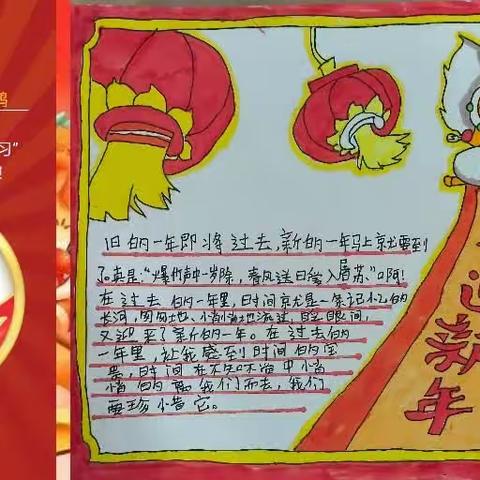 鸣
习”
!
旧的一年即将过去,新的一年马上就要到
了。真是:“爆竹声中一岁除,春风送暖入屠苏.”啊!
在过去的一年里,时间就是一条记忆的
长河,匆匆地、悄悄地流过,眨眼间,
又迎来了新的一年。在过去的
一年里,让我感到时间的宝
贵,时间在不知不觉中悄
悄的离我们而去,我们
要珍惜它。
迎新年